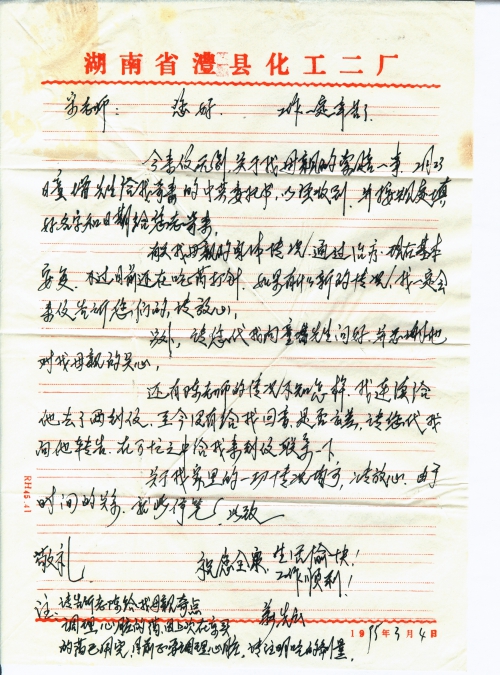 湖南省澧县化工二厂
宋老师： 您好 工作一定辛苦了
今来信 关于我母亲的索赔一事 2月23
日童增先生给我寄来的中英委托书，以收到，并按规定填
好名字和日期给您寄来。
有关我母亲的身体情况，通过治疗，现在基本
不过目前还在吃药打针，如果有什么新的情况，我一定会
来信告诉您们的，请放心，
另外，请您代我向童增先生问好，并感谢他
对我母亲的关心，
还有陈老师的情况不知怎样，我连续给
他去了两封信，至今没有给我回音，是否出差，请您代我
向他转告，在百忙之中给我来封信联系一下
关于我家里的一切情况 请放心，由于
时间的关系，就此停笔，此致
敬礼 祝您全家，生活愉快！
工作顺利！
注：请告诉老陈给我母亲寄点
调理心脏的药，上次在
的药已用完，目前正需调理心脏，请注明吃的剂量，
1995年3月4日
RH46.41